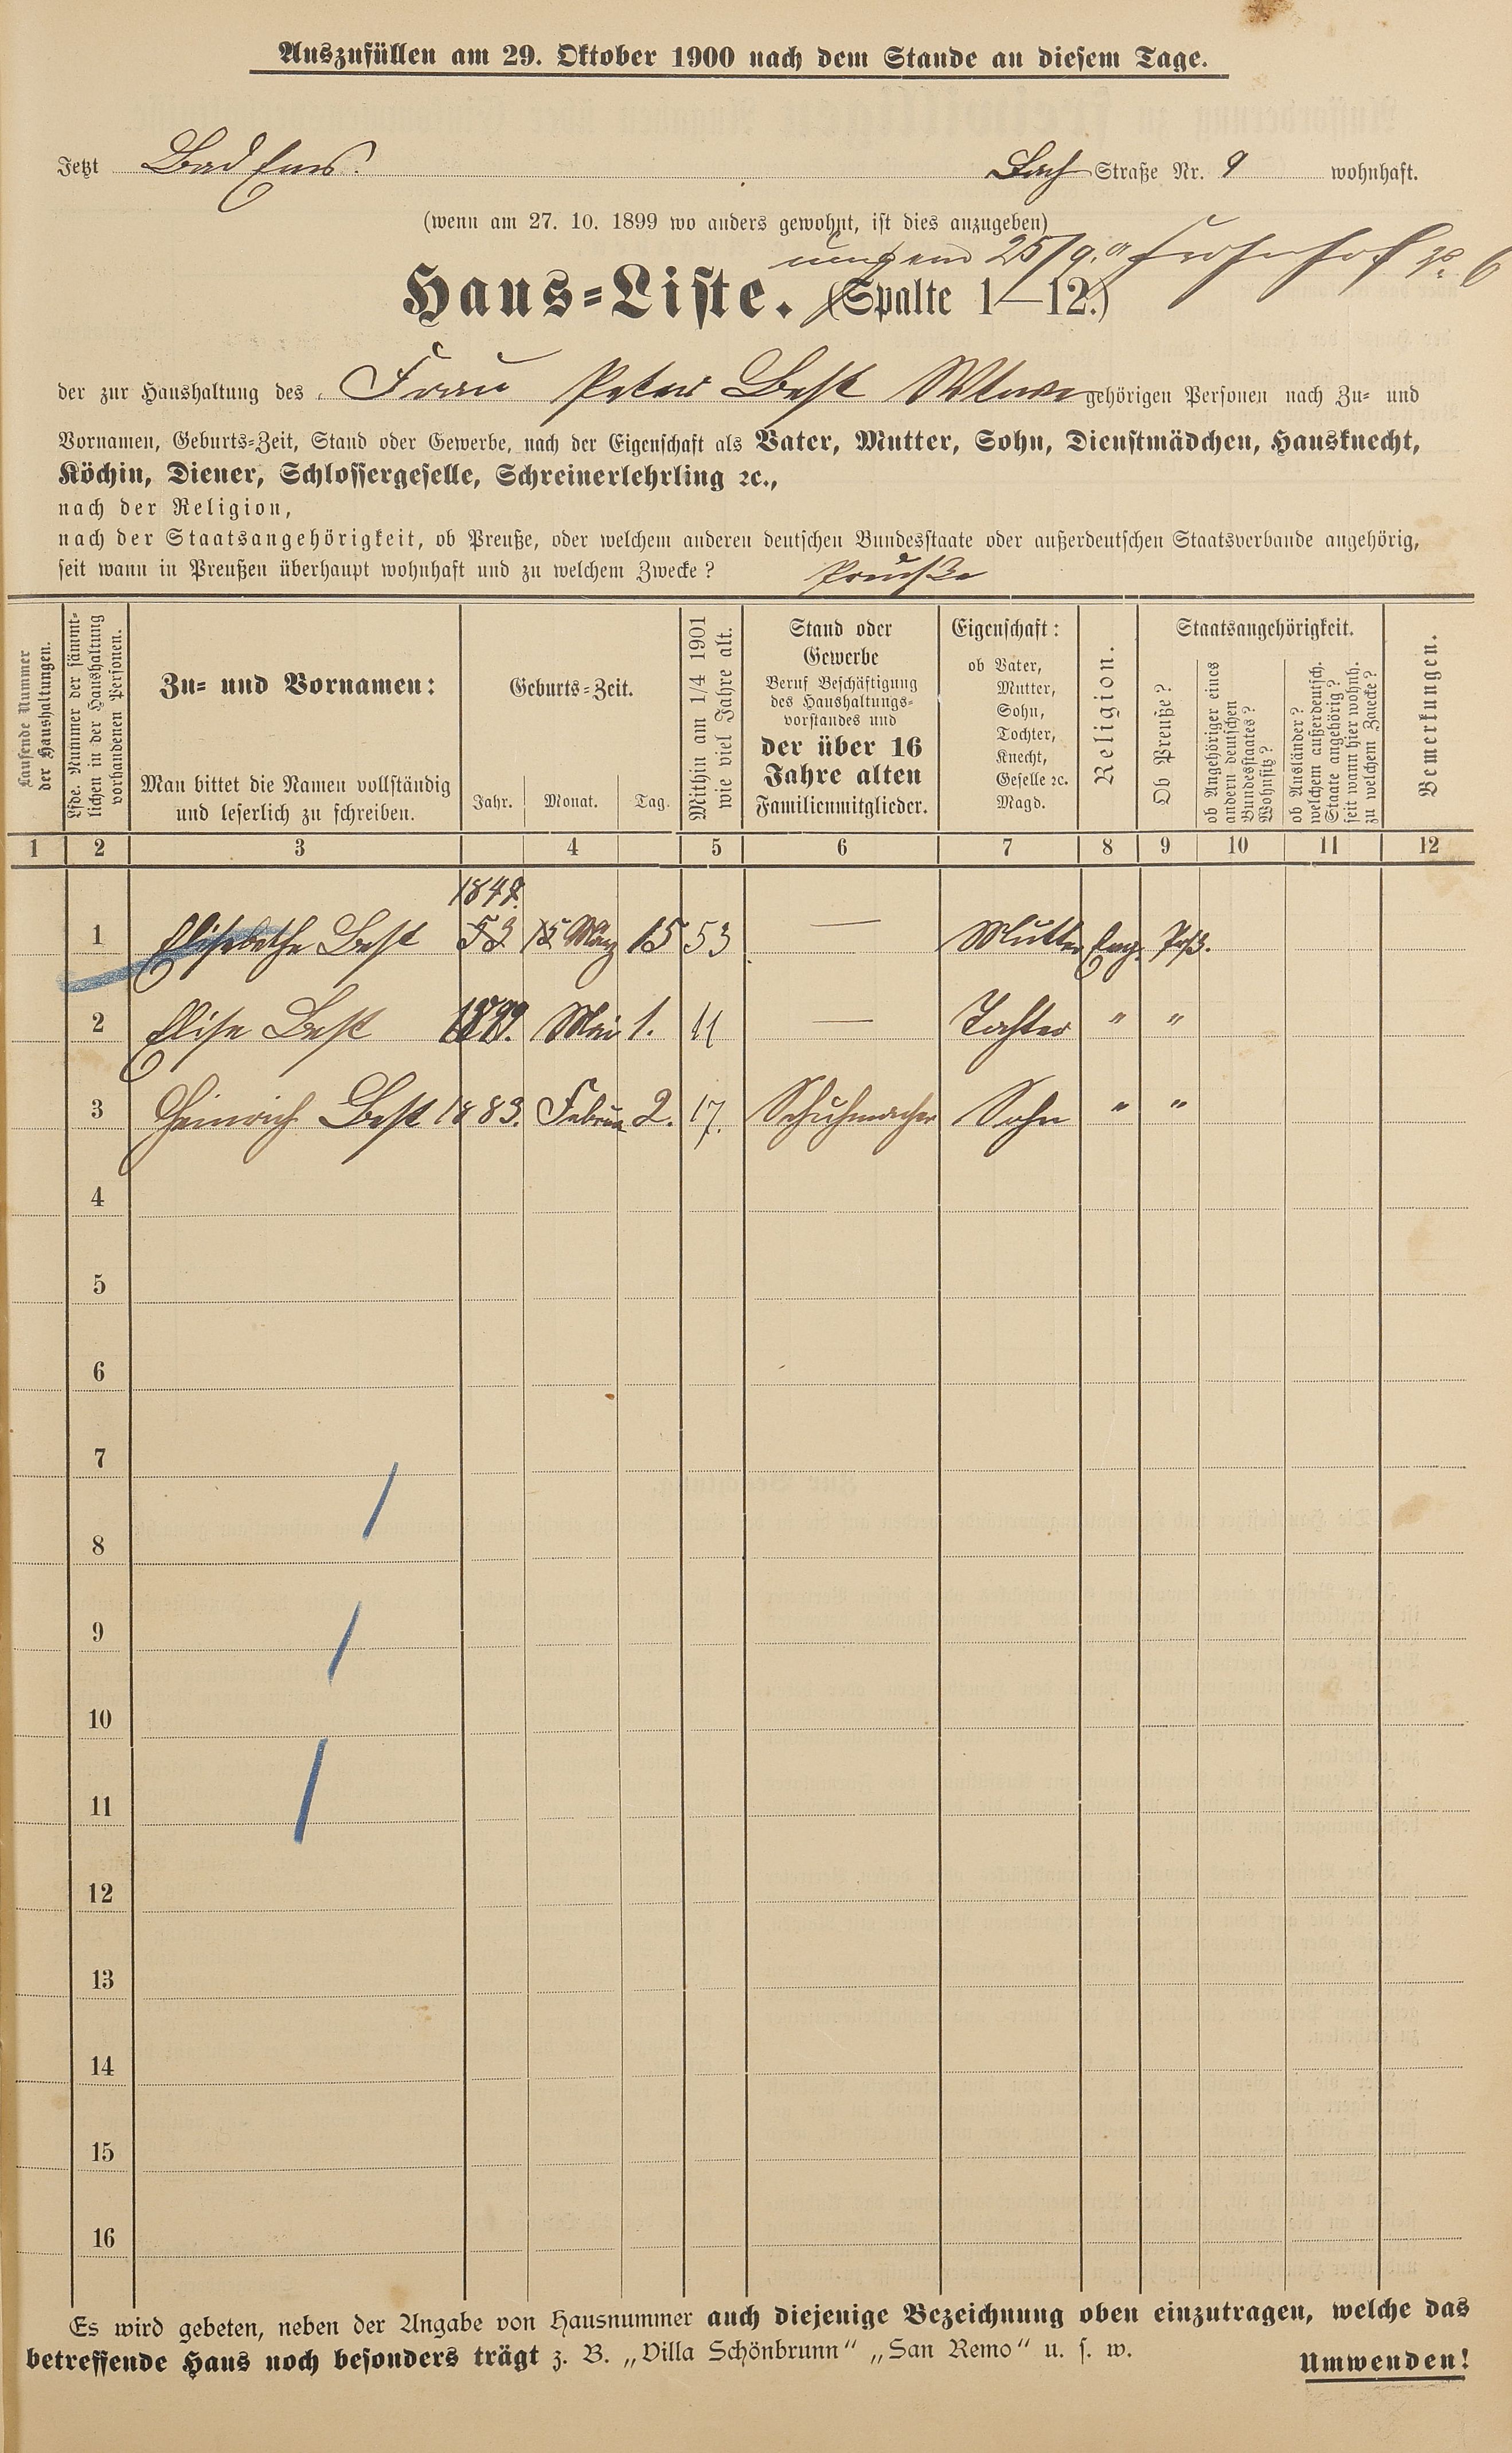 Auszufüllen am 29. Oktober 1900 nach dem Stande an diesem Tage.
Jetzt Bad Ems. Bach Straße Nr. 9 wohnhaft.
(wenn am 27. 10. 1899 wo anders gewohnt, ist dies anzugeben)
25/9.
Haus=Liste. (Spalte 1—12.)
der zur Haushaltung des Frau Peter Best Wtwe gehörigen Personen nach Zu= und
Vornamen, Geburts=Zeit, Stand oder Gewerbe, nach der Eigenschaft als Vater, Mutter, Sohn, Dienstmädchen, Hausknecht,
Köchin, Diener, Schlossergeselle, Schreinerlehrling ꝛc.,
nach der Religion,
nach der Staatsangehörigkeit, ob Preuße, oder welchem anderen deutschen Bundesstaate oder außerdeutschen Staatsverbande angehörig,
seit wann in Preußen überhaupt wohnhaft und zu welchem Zwecke? Preuße
Laufende Nummer
der Haushaltungen.
Lfde. Nummer der sämmt=
lichen in der Haushaltung
vorhandenen Personen.
Zu= und Vornamen:
Man bittet die Namen vollständig
und leserlich zu schreiben.
Geburts=Zeit.
Jahr. Monat. Tag.
Mithin am 1/4 1901
wie viel Jahre alt.
Stand oder
Gewerbe
Beruf Beschäftigung
des Haushaltungs=
vorstandes und
der über 16
Jahre alten
Familienmitglieder.
Eigenschaft:
ob Vater,
Mutter,
Sohn,
Tochter,
Knecht,
Geselle ꝛc.
Magd.
Religion.
Staatsangehörigkeit.
Ob Preuße?
ob Angehöriger eines
andern deutschen
Bundesstaates?
Wohnsitz?
ob Ausländer?
welchem außerdeutsch.
Staate angehörig?
seit wann hier wohnh.
zu welchem Zwecke?
Bemerkungen.
1 2 3 4 5 6 7 8 9 10 11 12
1 Elisabethe Best 53 März 15 53 — Mutter Evg. Prß.
2 Elise Best Mai 1. 11 — Tochter " "
3 Heinrich Best 1883. Februar 2. 17. Schuhmacher Sohn " "
4
5
6
7
8
9
10
11
12
13
14
15
16
Es wird gebeten, neben der Angabe von Hausnummer auch diejenige Bezeichnung oben einzutragen, welche das
betreffende Haus noch besonders trägt z. B. „Villa Schönbrunn" „San Remo" u. s. w.
Umwenden!